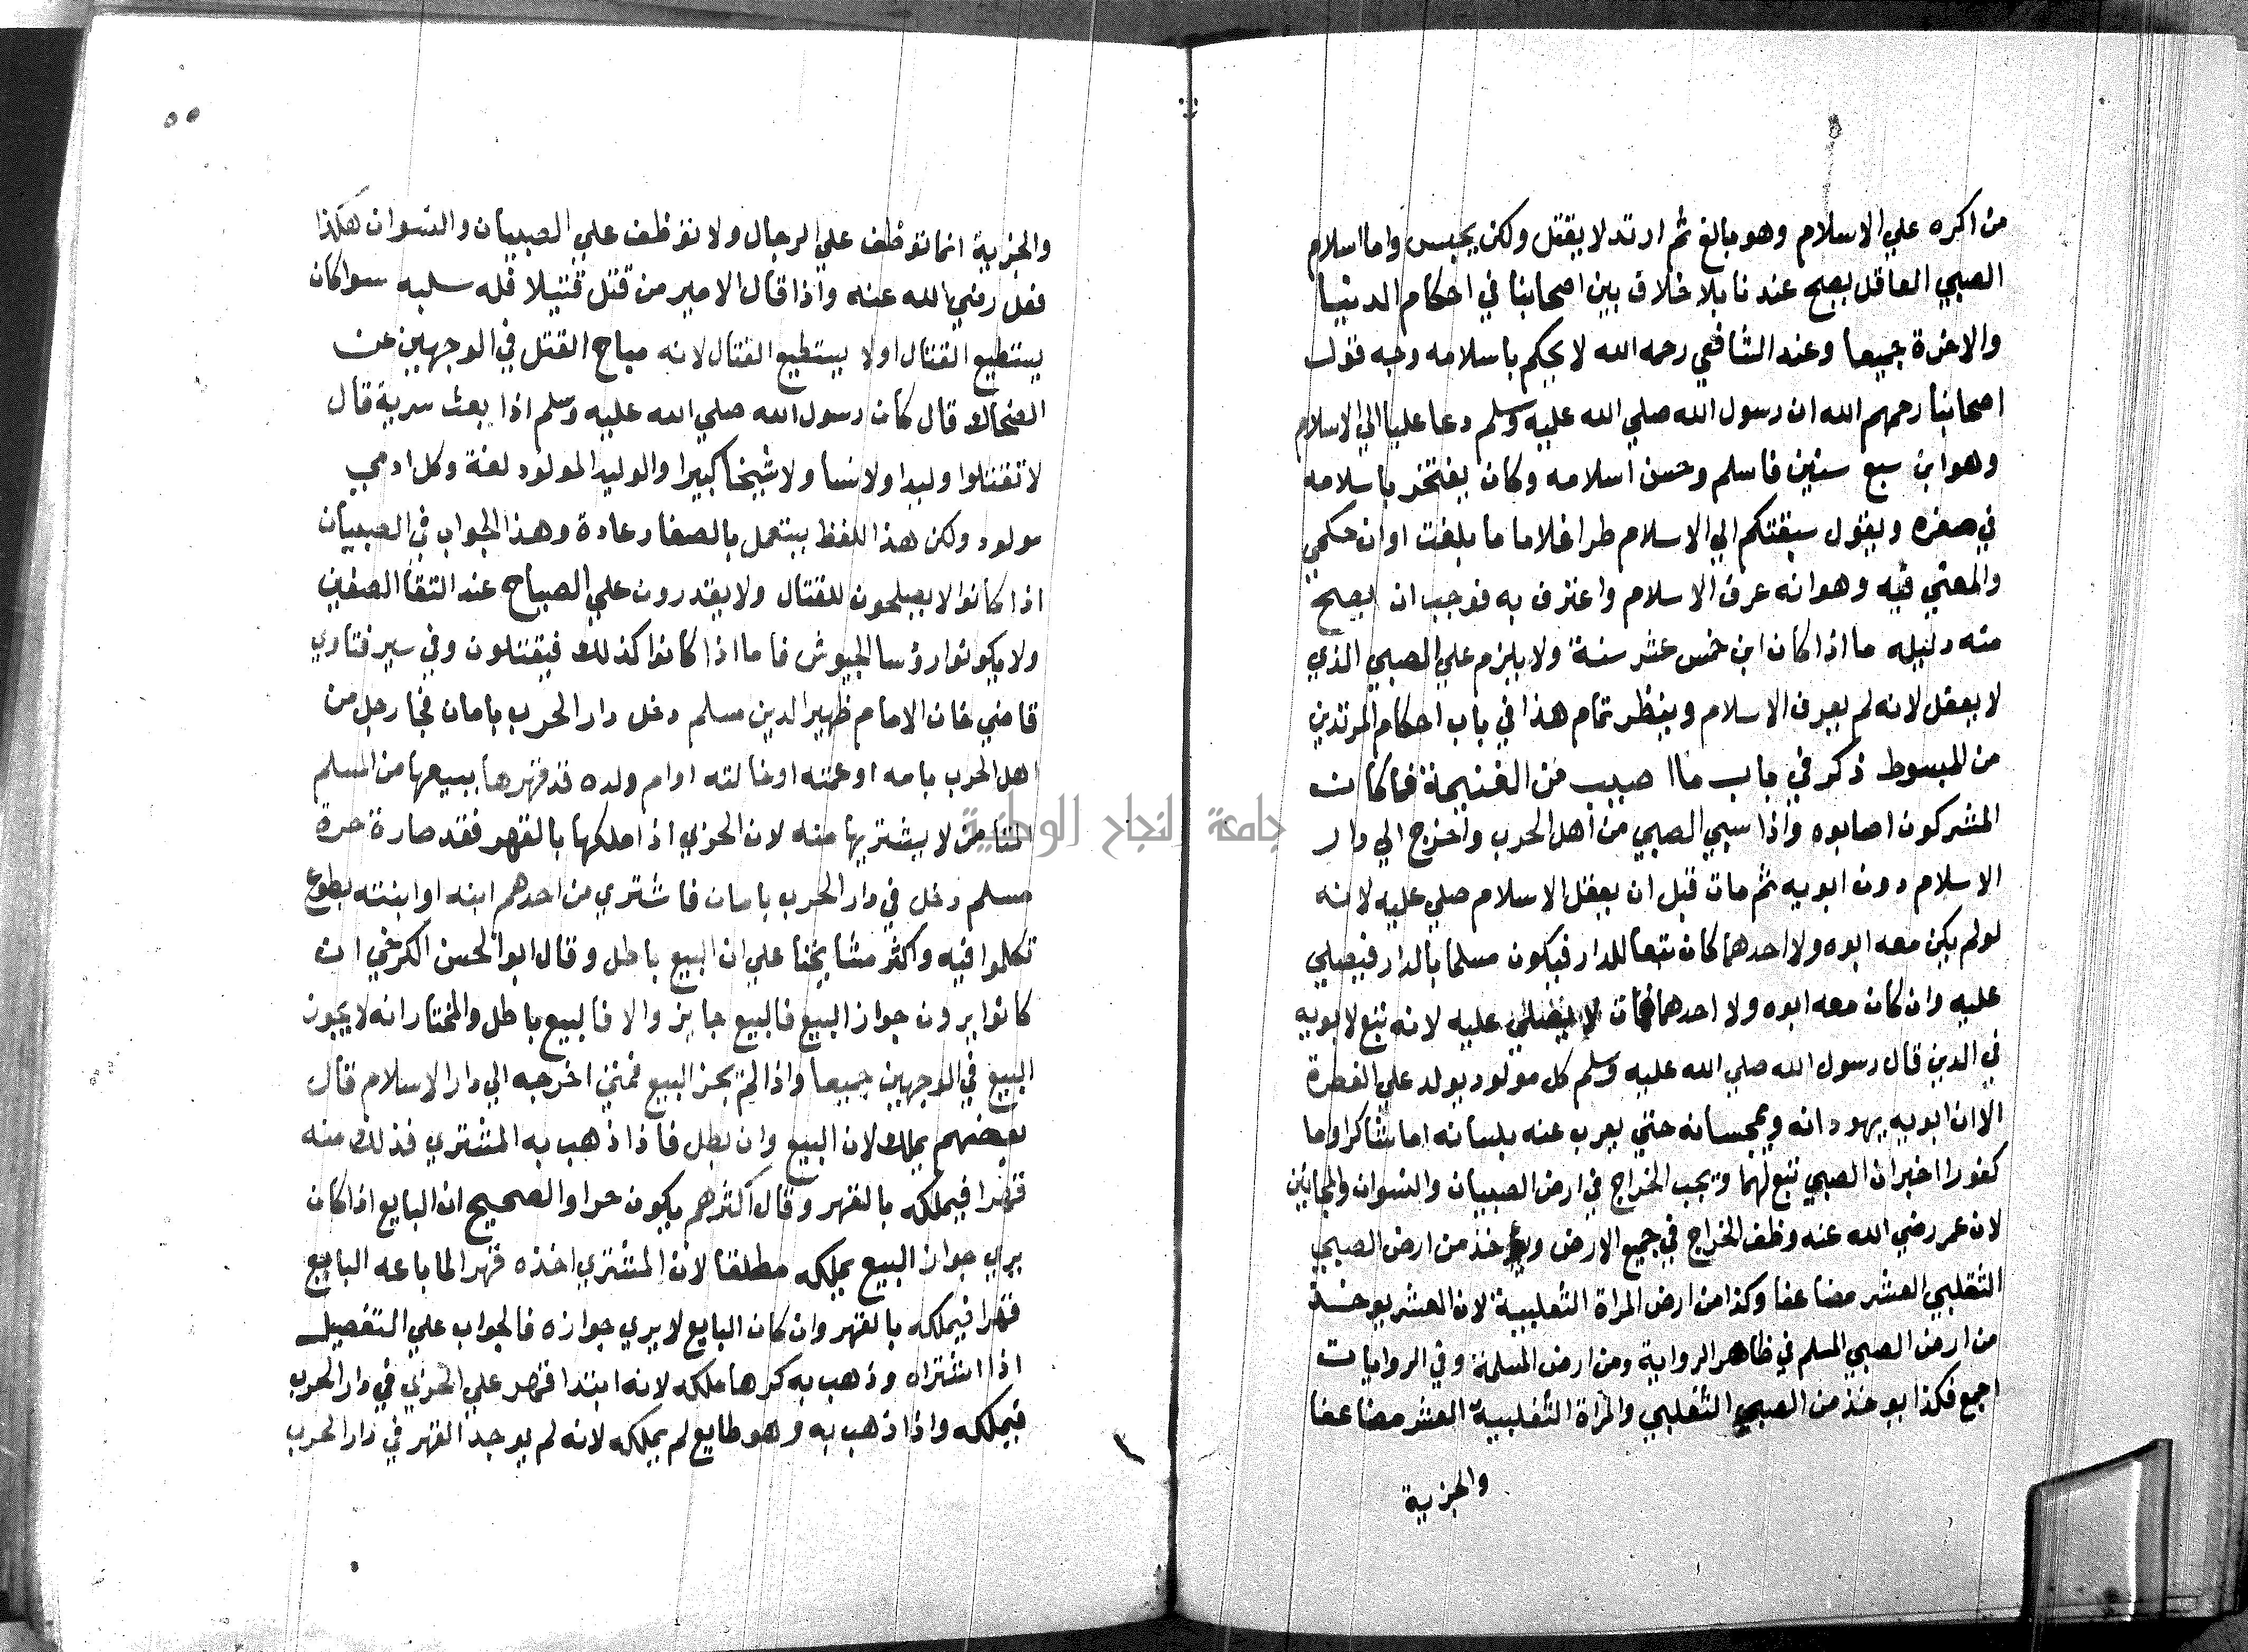 من اكره علي الاسلام وهو بالغ ثم ارتد لا يقتل ولكن يحبس واما اسلام
الصبي العاقل يصح عندنا بلا خلاف بين اصحابنا في احكام الدنيا
والاخرة جميعا وعند الشافعي رحمه الله لا يحكم باسلامه وجه قول
اصحابنا رحمهم الله ان رسول الله صلي الله عليه وسلم دعا عليا الي الاسلام
وهو ابن سبع سنين فاسلم وحسن اسلامه وكان يفتخر باسلامه
في صغره ويقول سبقتكم الي الاسلام طرا غلاما ما بلغت اوان حكمي
والمعني فيه وهو انه عرف الاسلام واعترف به فوجب ان يصح
منه دليله ما اذا كان ابن خمس عشر سنة ولا يلزم علي الصبي الذي
لا يعقل لانه لم يعرف الاسلام وينظر تمام هذا في باب احكام المرتدين
من المبسوط ذكر في باب ما اصيب من الغنيمة مما كانت
المشركون اصابوه واذا سبي الصبي من اهل الحرب واخرج الي دار
الاسلام دون ابويه ثم مات قبل ان يعقل الاسلام صلي عليه لانه
لو لم يكن معه ابوه ولا احدهما كان تبعا للدار فيكون مسلما بالدار فيصلي
عليه وان كان معه ابوه ولا احدهما فمات لا يصلي عليه لانه تبع لابويه
في الدين قال رسول الله صلي الله عليه وسلم كل مولود يولد علي الفطرة
الا ان ابويه يهودانه ويمجسانه حتي يعرب عنه بلسانه اما شاكرا واما
كفورا اخبر ان الصبي تبع لهما ويجب الخراج في ارض الصبيان والنسوان والمجانين
لان عمر رضي الله عنه وظف الخراج في جميع الارض ويؤخذ من ارض الصبي
التغلبي العشر مضاعفا وكذا من ارض المراة التغلبية لان العشر يوخذ
من ارض الصبي المسلم في ظاهر الرواية ومن ارض المسلمة وفي الروايات
اجمع فكذا يوخذ من الصبي التغلبي والمراة التغلبية العشر مضاعفا
والجزية
٥٥
والجزية انما توظف علي الرجال ولا توظف علي الصبيان والنسوان هكذا
فعل رضي الله عنه واذا قال الامير من قتل قتيلا فله سلبه سوا كان
يستطيع القتال اولا يستطيع القتال لانه مباح القتل في الوجهين عن
الضحاك قال كان رسول الله صلي الله عليه وسلم اذا بعث سرية قال
لا تقتلوا وليدا ولا نسا ولا شيخا كبيرا والوليد المولود لغة وكل ادمي
مولود ولكن هذا اللفظ يستعمل بالصغار عادة وهذا الجواب في الصبيان
اذا كانوا لا يصلحون للقتال ولا يقدرون علي الصياح عند التقا الصفين
ولا يكونوا رؤسا الجيوش فاما اذا كانوا كذلك فيقتلون وفي سير فتاوي
قاضي خان الامام ظهير الدين مسلم دخل دار الحرب بامان فجا رجل من
اهل الحرب بامه او عمته او خالته او ام ولده قد قهرها يبيعها من المسلم
المتامن لا يشتريها منه لان الحربي اذا ملكها بالقهر فقد صارة حرة
مسلم دخل في دار الحرب بامان فاشتري من احدهم ابنه او ابنته بطوع
تكلموا فيه واكثر مشايخنا علي ان البيع باطل وقال ابو الحسن الكرخي ان
كانوا يرون جواز البيع فالبيع جايز والا فالبيع باطل والمختار انه لا يجوز
البيع في الوجهين جميعا واذا لم يجز البيع فمتي اخرجه الي دار الاسلام قال
بعضهم يملك لان البيع وان بطل فاذا ذهب به المشتري فذلك منه
قهرا فيملكه بالقهر وقال اكثرهم يكون حرا والصحيح ان البايع اذا كان
يري جواز البيع يملكه مطلقا لان المشتري اخذه قهرا لما باعه البايع
قهرا فيملكه بالقهر وان كان البايع لا يري جوازه فالجواب علي التفصيل
اذا اشتراه وذهب به كرها ملكه لانه ابتدا قهر علي الحربي في دار الحرب
فيملكه واذا ذهب به وهو طايع لم يملكه لانه لم يوجد القهر في دار الحرب
جامعة النجاح الوطنية